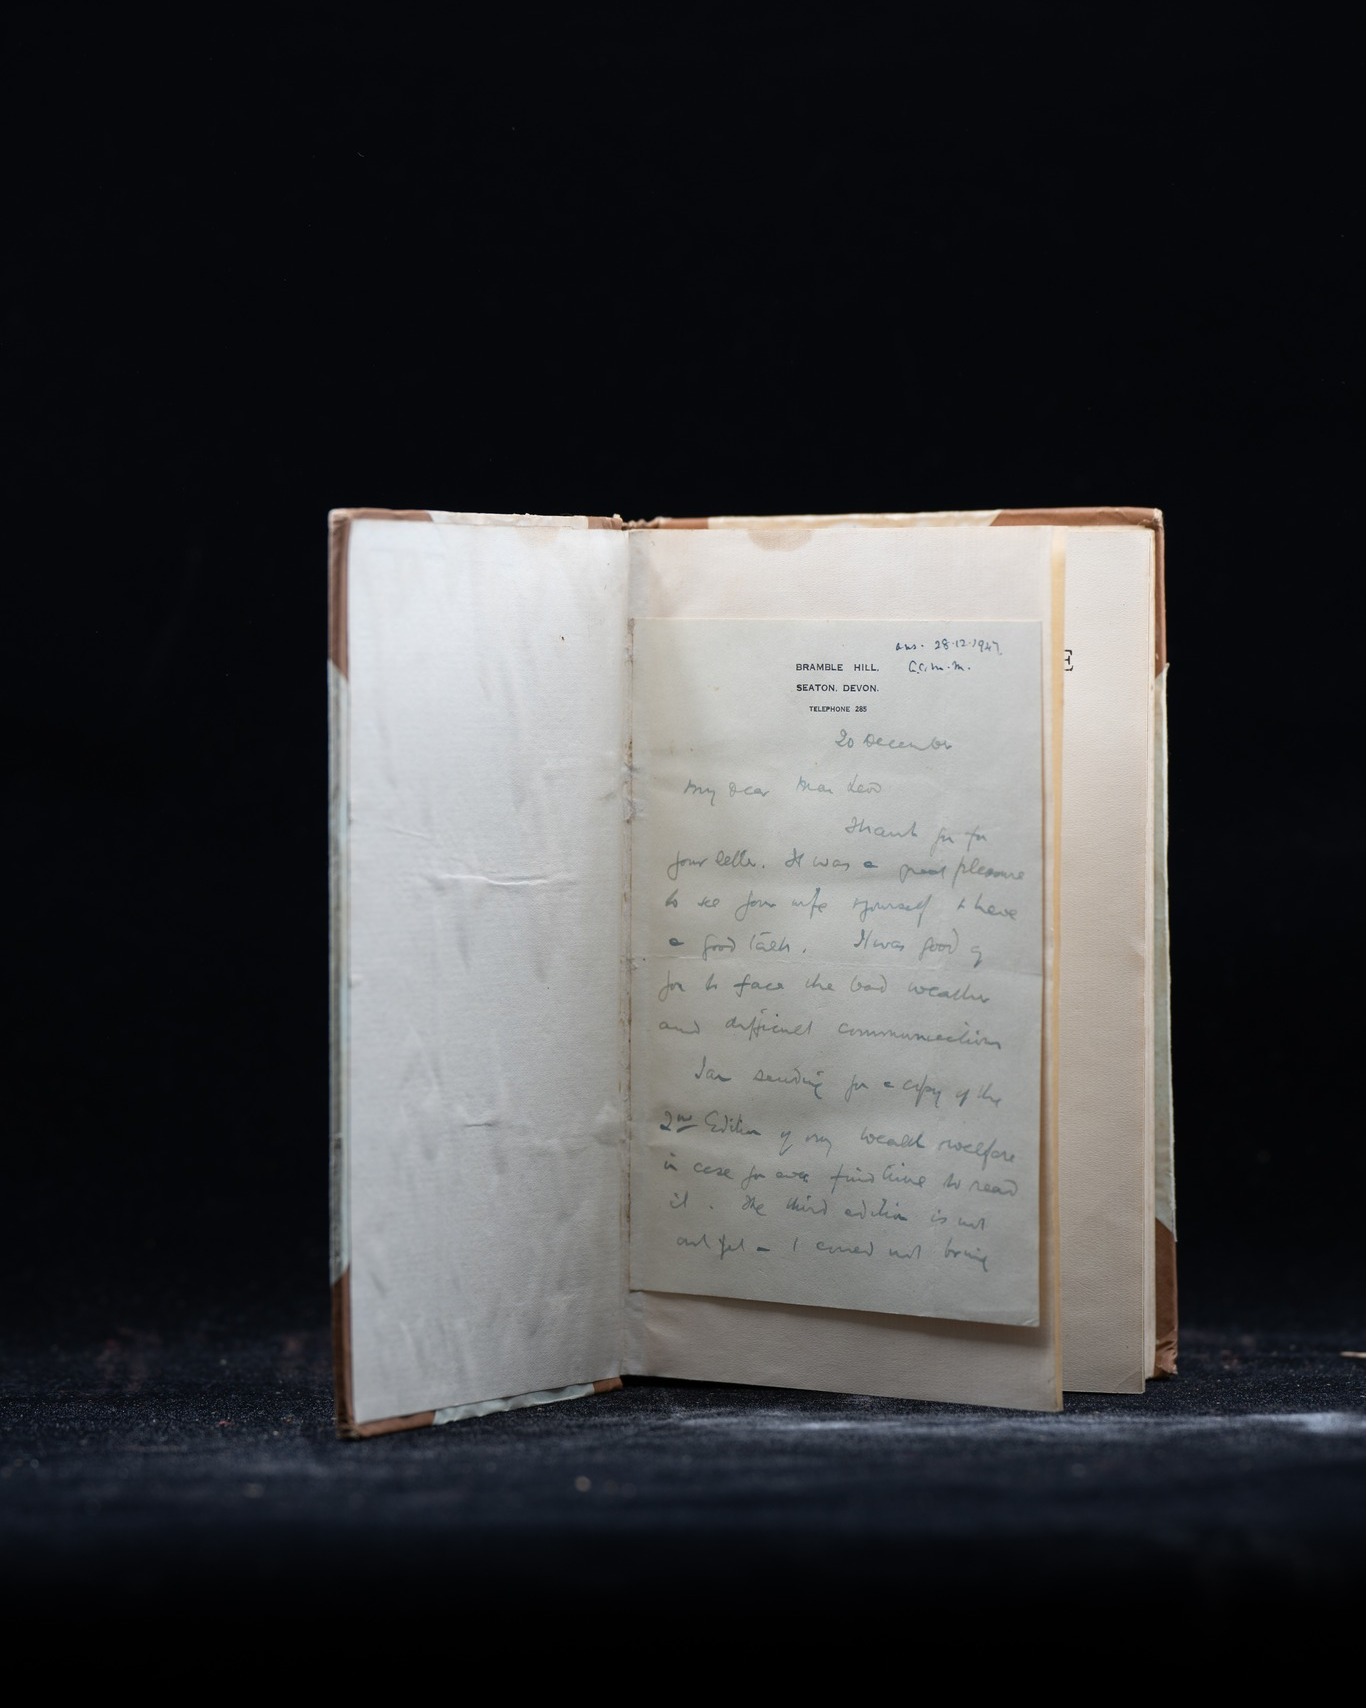 ans. 28.12.1947.
BRAMBLE HILL,
SEATON, DEVON.
TELEPHONE 285
20 December
My dear
Thank you for
your letter. It was a great pleasure
to see your wife & yourself & have
a good talk. It was good of
you to face the bad weather
and difficult communications
I am sending you a copy of the
2nd Edition of my Wealth & Welfare
in case you ever find time to read
it. The third edition is not
out yet – I could not bring
E